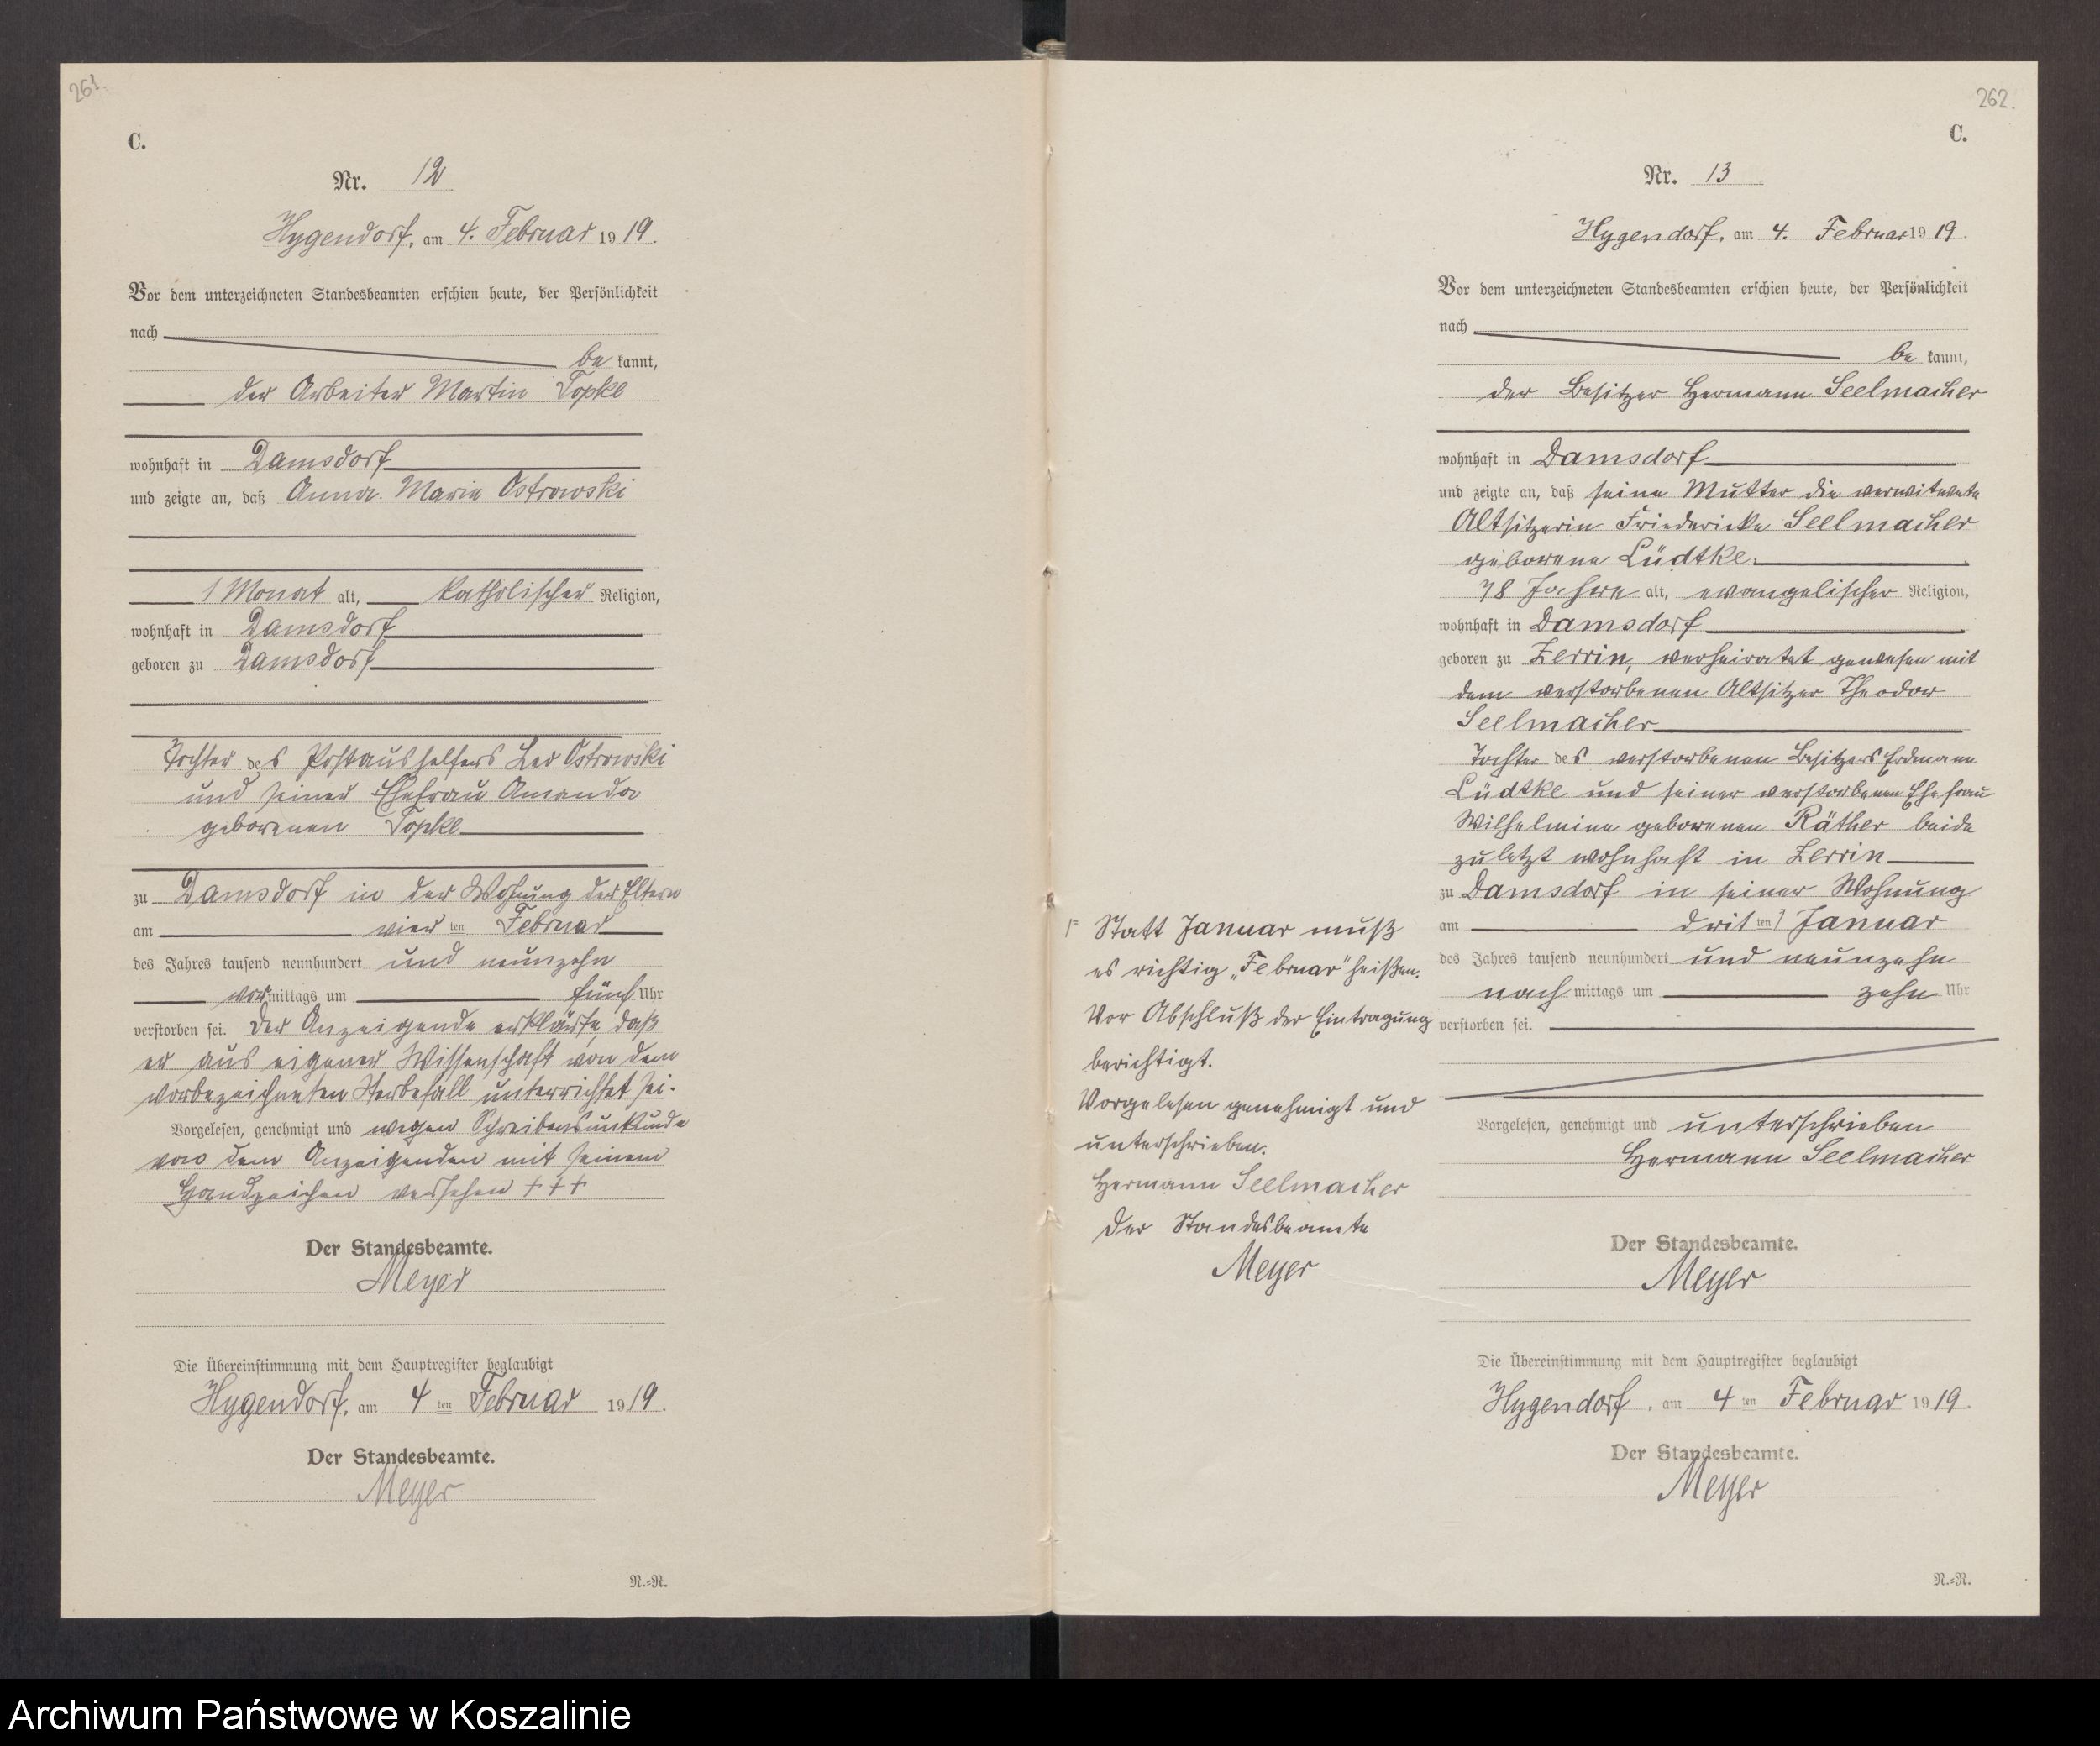 261.
C.
Nr. 12
Hygendorf, am 4. Februar 1919.
Vor dem unterzeichneten Standesbeamten erschien heute, der Persönlichkeit
nach
be kannt,
der Arbeiter Martin Topke
wohnhaft in Damsdorf
und zeigte an, daß Anna Maria Ostrowski
1 Monat alt, katholischer Religion,
wohnhaft in Damsdorf
geboren zu Damsdorf
Tochter des Postaushelfers Leo Ostrowski
und seiner Ehefrau Amanda
geborenen Topke
zu Damsdorf in der Wohnung der Eltern
am vier ten Februar
des Jahres tausend neunhundert und neunzehn
vor mittags um fünf Uhr
verstorben sei. Der Anzeigende erklärte, daß
er aus eigener Wissenschaft von dem
vorbezeichneten Sterbefall unterrichtet sei.
Vorgelesen, genehmigt und wegen Schreibensunkunde
von dem Anzeigenden mit seinem
Handzeichen versehen +++
Der Standesbeamte.
Meyer
Die Übereinstimmung mit dem Hauptregister beglaubigt
Hygendorf, am 4 ten Februar 1919.
Der Standesbeamte.
Meyer
N.=R.
262.
C.
Nr. 13
Hygendorf, am 4. Februar 1919.
Vor dem unterzeichneten Standesbeamten erschien heute, der Persönlichkeit
nach
be kannt,
der Besitzer Hermann Seelmacher
wohnhaft in Damsdorf
und zeigte an, daß seine Mutter die verwitwete
Altsitzerin Friedericke Seelmacher
geborene Lüdtke
78 Jahre alt, evangelischer Religion,
wohnhaft in Damsdorf
geboren zu Zerrin, verheiratet gewesen mit
dem verstorbenen Altsitzer Theodor
Seelmacher
Tochter des verstorbenen Besitzers Erdmann
Lüdtke und seiner verstorbenen Ehefrau
Wilhelmine geborenen Räther beide
zuletzt wohnhaft in Zerrin
zu Damsdorf in seiner Wohnung
am drit ten Januar
des Jahres tausend neunhundert und neunzehn
nach mittags um zehn Uhr
verstorben sei.
Vorgelesen, genehmigt und unterschrieben
Hermann Seelmacher
Der Standesbeamte.
Meyer
Die Übereinstimmung mit dem Hauptregister beglaubigt
Hygendorf, am 4 ten Februar 1919.
Der Standesbeamte.
Meyer
N.=R.
Statt Januar muß
es richtig „Februar" heißen.
Vor Abschluß der Eintragung
berichtigt.
Vorgelesen genehmigt und
unterschrieben.
Hermann Seelmacher
Der Standesbeamte
Meyer
Archiwum Państwowe w Koszalinie